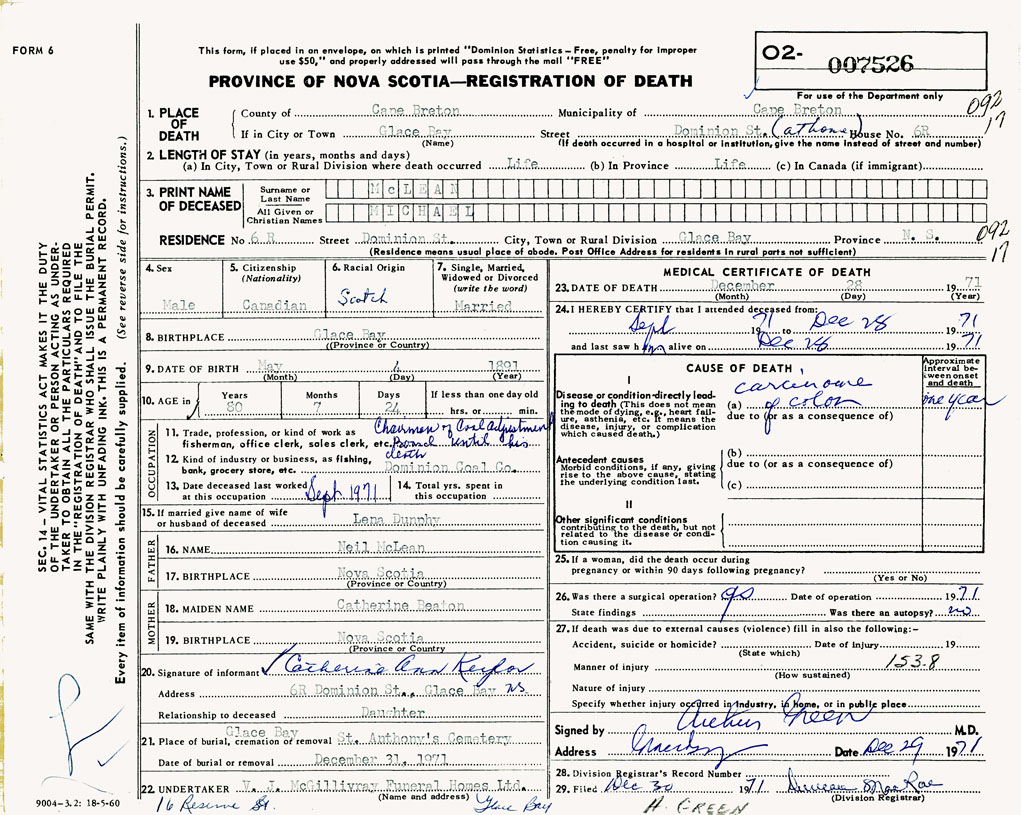 FORM 6
This form, if placed in an envelope, on which is printed "Dominion Statistics – Free, penalty for improper
use $50," and properly addressed will pass through the mail "FREE"
PROVINCE OF NOVA SCOTIA—REGISTRATION OF DEATH
02- 007526
For use of the Department only
092
17
1. PLACE OF DEATH
County of Cape Breton Municipality of Cape Breton
If in City or Town Glace Bay Street Dominion St. (at home) House No. 6R
(Name) (If death occurred in a hospital or institution, give the name instead of street and number)
2. LENGTH OF STAY (in years, months and days)
(a) In City, Town or Rural Division where death occurred Life (b) In Province Life (c) In Canada (if immigrant)
3. PRINT NAME OF DECEASED
Surname or Last Name McLEAN
All Given or Christian Names MICHAEL
092
17
RESIDENCE No. 6 R Street Dominion St. City, Town or Rural Division Glace Bay Province N. S.
(Residence means usual place of abode. Post Office Address for residents in rural parts not sufficient)
4. Sex
Male
5. Citizenship (Nationality)
Canadian
6. Racial Origin
Scotch
7. Single, Married, Widowed or Divorced (write the word)
Married
8. BIRTHPLACE Glace Bay
(Province or Country)
9. DATE OF BIRTH May 4 1891
(Month) (Day) (Year)
10. AGE in Years Months Days If less than one day old
80 7 24 hrs. or min.
OCCUPATION
11. Trade, profession, or kind of work as fisherman, office clerk, sales clerk, etc. Chairman of Coal Adjustment Board until his death
12. Kind of industry or business, as fishing, bank, grocery store, etc. Dominion Coal Co.
13. Date deceased last worked at this occupation Sept 1971
14. Total yrs. spent in this occupation
15. If married give name of wife or husband of deceased Lena Dunphy
FATHER
16. NAME Neil McLean
17. BIRTHPLACE Nova Scotia
(Province or Country)
MOTHER
18. MAIDEN NAME Catherine Beaton
19. BIRTHPLACE Nova Scotia
(Province or Country)
20. Signature of informant Catherine Ann
Address 6R Dominion St., Glace Bay NS
Relationship to deceased Daughter
21. Place of burial, cremation or removal Glace Bay St. Anthony's Cemetery
Date of burial or removal December 31, 1971
22. UNDERTAKER V. J. McGillivray Funeral Homes Ltd.
(Name and address)
16 Reserve St. Glace Bay
MEDICAL CERTIFICATE OF DEATH
23. DATE OF DEATH December 28 1971
(Month) (Day) (Year)
24. I HEREBY CERTIFY that I attended deceased from:
Sept 1971 to Dec 28 1971
and last saw him alive on Dec 28 1971
CAUSE OF DEATH
Approximate interval between onset and death
I
Disease or condition directly leading to death (This does not mean the mode of dying, e.g., heart failure, asthenia, etc. It means the disease, injury, or complication which caused death.)
(a) carcinoma of colon one year
due to (or as a consequence of)
Antecedent causes
Morbid conditions, if any, giving rise to the above cause, stating the underlying condition last.
(b)
due to (or as a consequence of)
(c)
II
Other significant conditions
contributing to the death, but not related to the disease or condition causing it.
25. If a woman, did the death occur during pregnancy or within 90 days following pregnancy?
(Yes or No)
26. Was there a surgical operation? yes Date of operation 1971
State findings Was there an autopsy? no
27. If death was due to external causes (violence) fill in also the following:–
Accident, suicide or homicide? Date of injury 19
(State which)
153.8
Manner of injury
(How sustained)
Nature of injury
Specify whether injury occurred in Industry, in Home, or in public place
Signed by Arthur Green M.D.
Address Date Dec 29 1971
28. Division Registrar's Record Number
29. Filed Dec 30 1971 Duncan MacRae
(Division Registrar)
H. GREEN
SEC. 14 – VITAL STATISTICS ACT MAKES IT THE DUTY
OF THE UNDERTAKER OR PERSON ACTING AS UNDER-
TAKER TO OBTAIN ALL THE PARTICULARS REQUIRED
IN THE "REGISTRATION OF DEATH" AND TO FILE THE
SAME WITH THE DIVISION REGISTRAR WHO SHALL ISSUE THE BURIAL PERMIT.
WRITE PLAINLY WITH UNFADING INK. THIS IS A PERMANENT RECORD.
Every item of information should be carefully supplied. (See reverse side for instructions.)
9004-3.2: 18-5-60